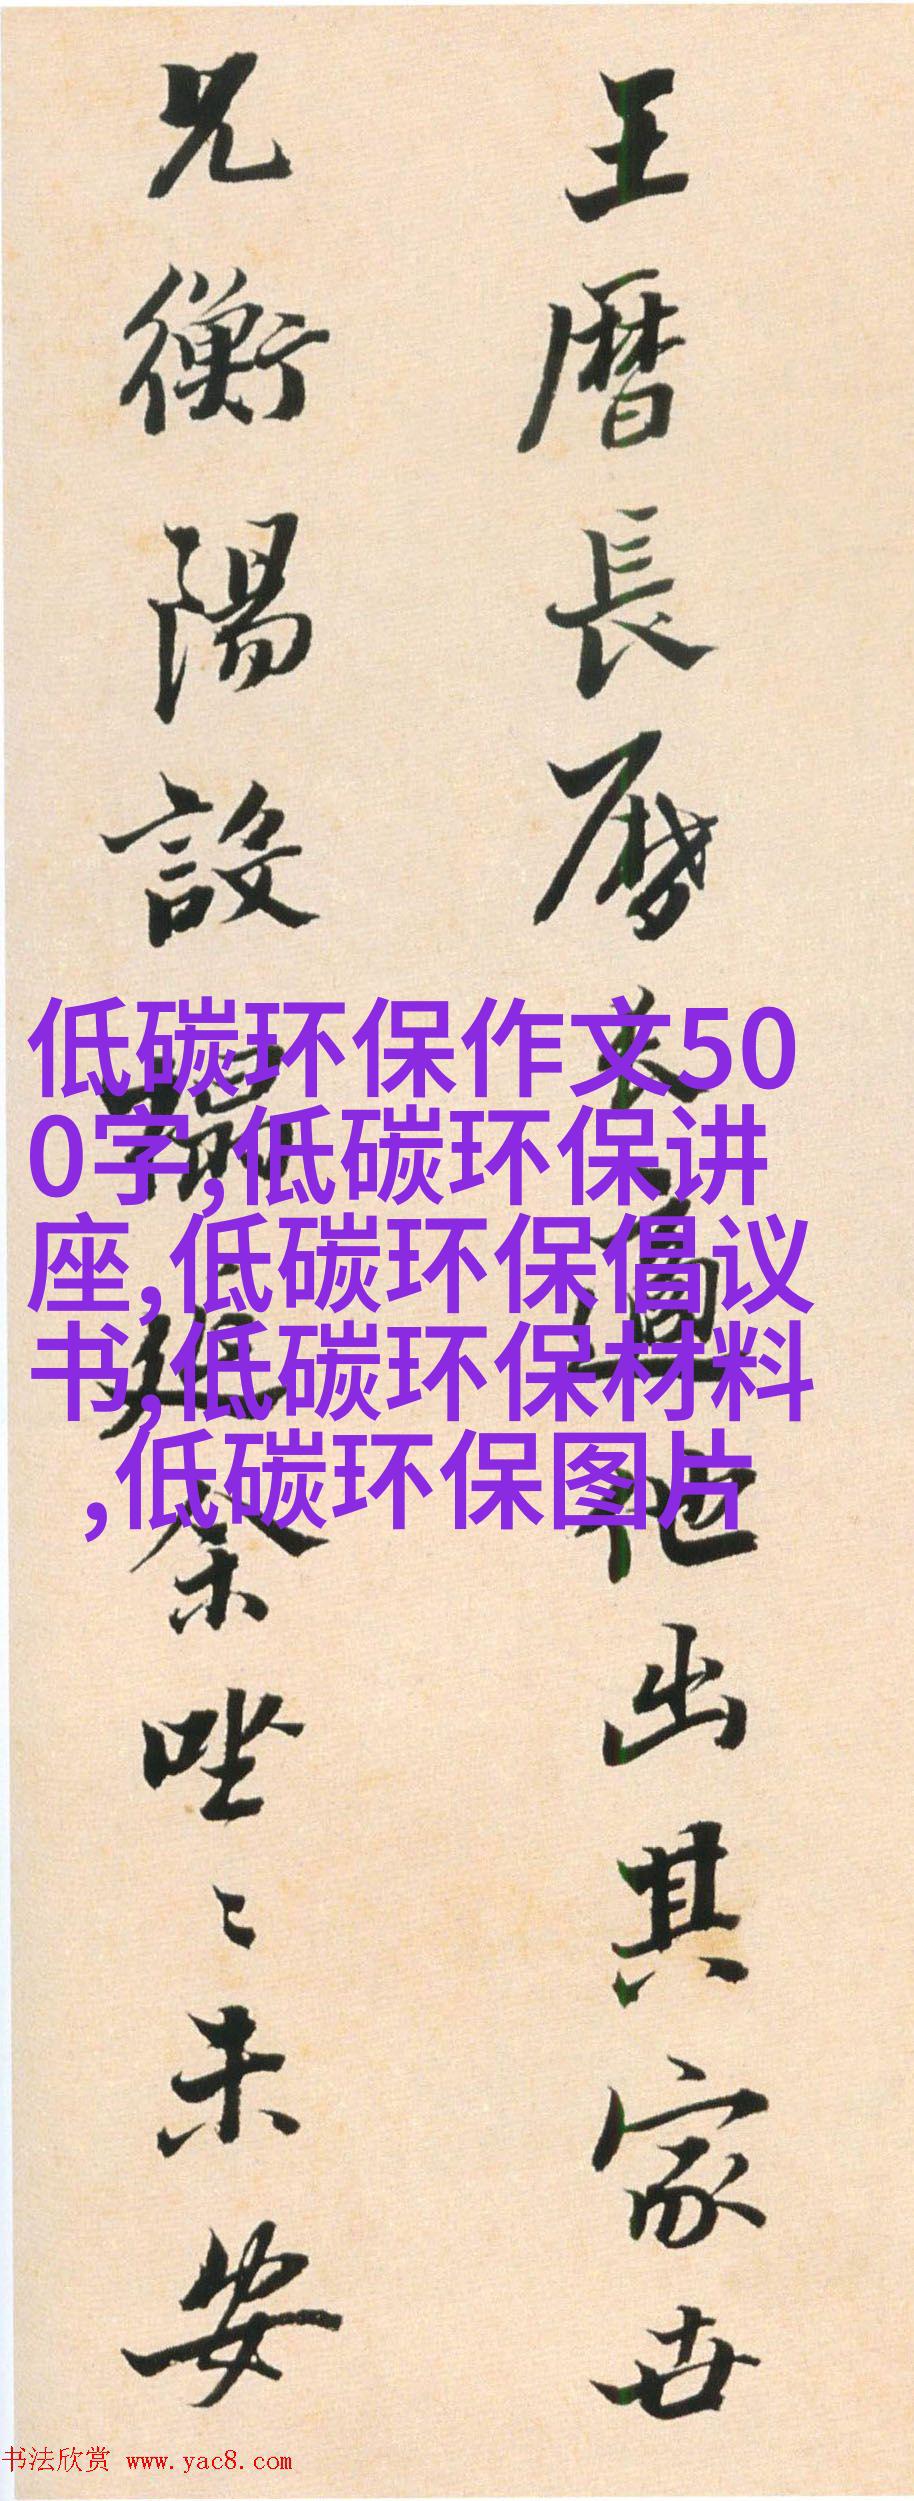 王曆長曆
出其家世
兄衡陽設
祭唑〻未安
低碳环保作文50
0字,低碳环保讲
座,低碳环保倡议
书,低碳环保材料
,低碳环保图片
书法欣赏 www.yac8.com